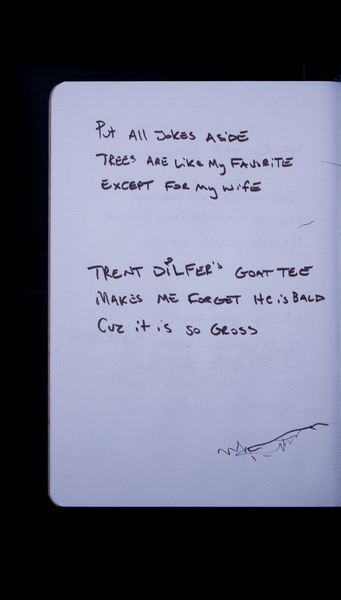 Put All Jokes Aside
Trees are like my favorite
except for my wife
Trent Dilfer's goattee
makes me forget he is bald
Cuz it is so gross